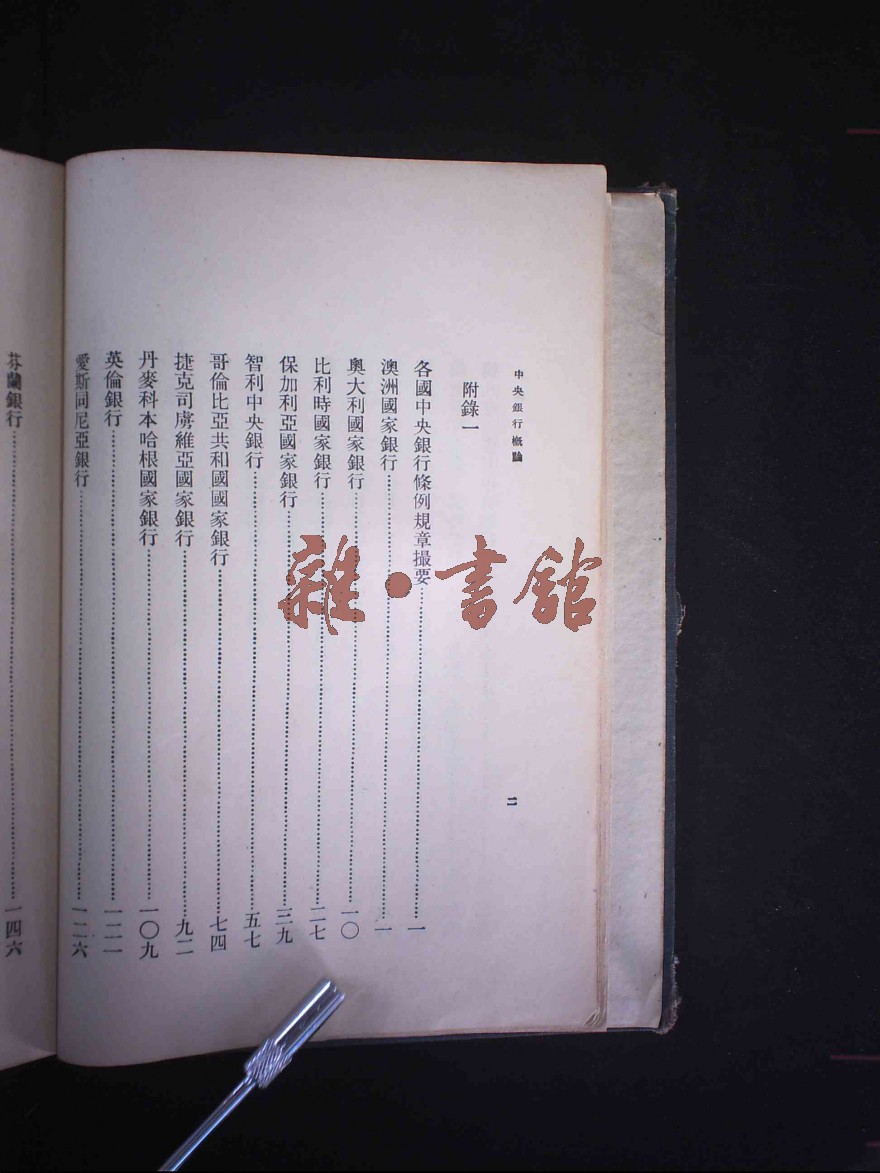 中央銀行概論
二
附錄一
各國中央銀行條例規章撮要……一
澳洲國家銀行……一
奧大利國家銀行……一〇
比利時國家銀行……二七
保加利亞國家銀行……三九
智利中央銀行……五七
哥倫比亞共和國國家銀行……七四
捷克司虜維亞國家銀行……九二
丹麥科本哈根國家銀行……一〇九
英倫銀行……一二一
愛斯同尼亞銀行……一二六
芬蘭銀行……一四六
雜·書館